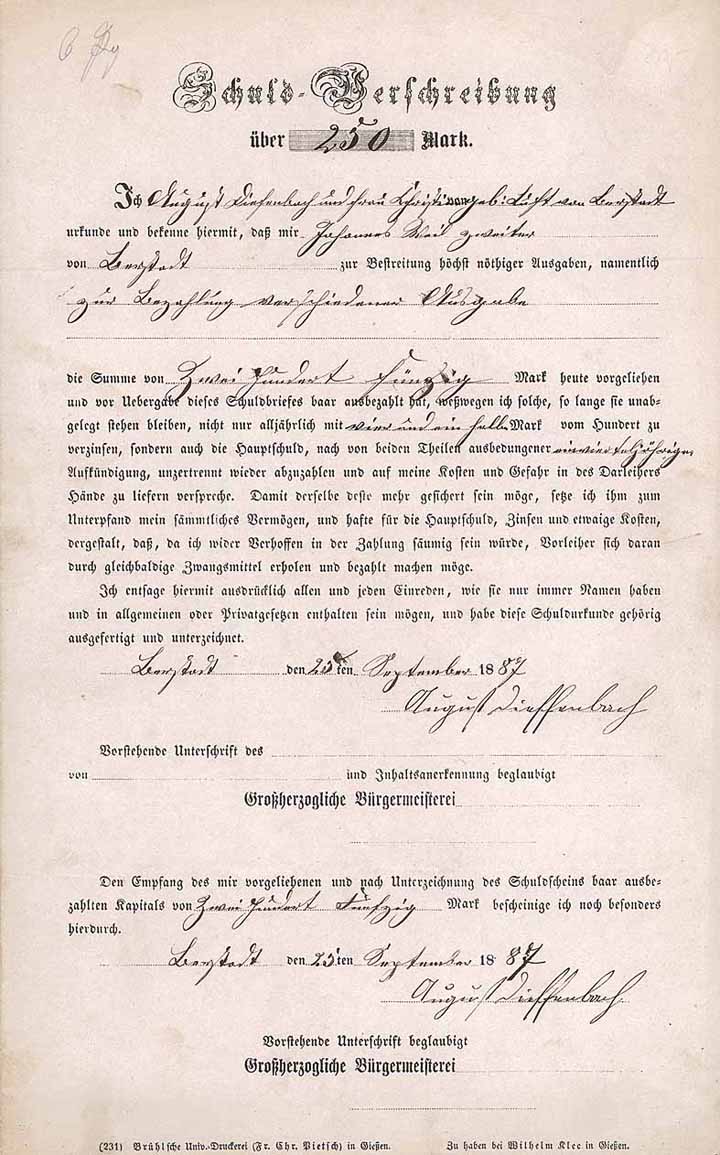 Schuld-Verschreibung
über 250 Mark.
Ich August Diefenbach und frau Christina geb: Luft von Berstadt
urkunde und bekenne hiermit, daß mir Johannes Weil zweiter
von Berstadt zur Bestreitung höchst nöthiger Ausgaben, namentlich
zur Bezahlung verschiedener Ausgabe
die Summe von Zwei Hundert fünfzig Mark heute vorgeliehen
und vor Uebergabe dieses Schuldbriefes baar ausbezahlt hat, weßwegen ich solche, so lange sie unab-
gelegt stehen bleiben, nicht nur alljährlich mit vier und ein halb Mark vom Hundert zu
verzinsen, sondern auch die Hauptschuld, nach von beiden Theilen ausbedungener einvierteljähriger
Aufkündigung, unzertrennt wieder abzuzahlen und auf meine Kosten und Gefahr in des Darleihers
Hände zu liefern verspreche. Damit derselbe deste mehr gesichert sein möge, setze ich ihm zum
Unterpfand mein sämmtliches Vermögen, und hafte für die Hauptschuld, Zinsen und etwaige Kosten,
dergestalt, daß, da ich wider Verhoffen in der Zahlung säumig sein würde, Vorleiher sich daran
durch gleichbaldige Zwangsmittel erholen und bezahlt machen möge.
Ich entsage hiermit ausdrücklich allen und jeden Einreden, wie sie nur immer Namen haben
und in allgemeinen oder Privatgesetzen enthalten sein mögen, und habe diese Schuldurkunde gehörig
ausgefertigt und unterzeichnet.
Berstadt den 25ten September 1887
August Dieffenbach
Vorstehende Unterschrift des
von und Inhaltsanerkennung beglaubigt
Großherzogliche Bürgermeisterei
Den Empfang des mir vorgeliehenen und nach Unterzeichnung des Schuldscheins baar ausbe-
zahlten Kapitals von Zwei Hundert Fünfzig Mark bescheinige ich noch besonders
hierdurch.
Berstadt den 25ten September 1887
August Dieffenbach
Vorstehende Unterschrift beglaubigt
Großherzogliche Bürgermeisterei
(231) Brühlsche Univ.-Druckerei (Fr. Chr. Pietsch) in Gießen. Zu haben bei Wilhelm Klee in Gießen.